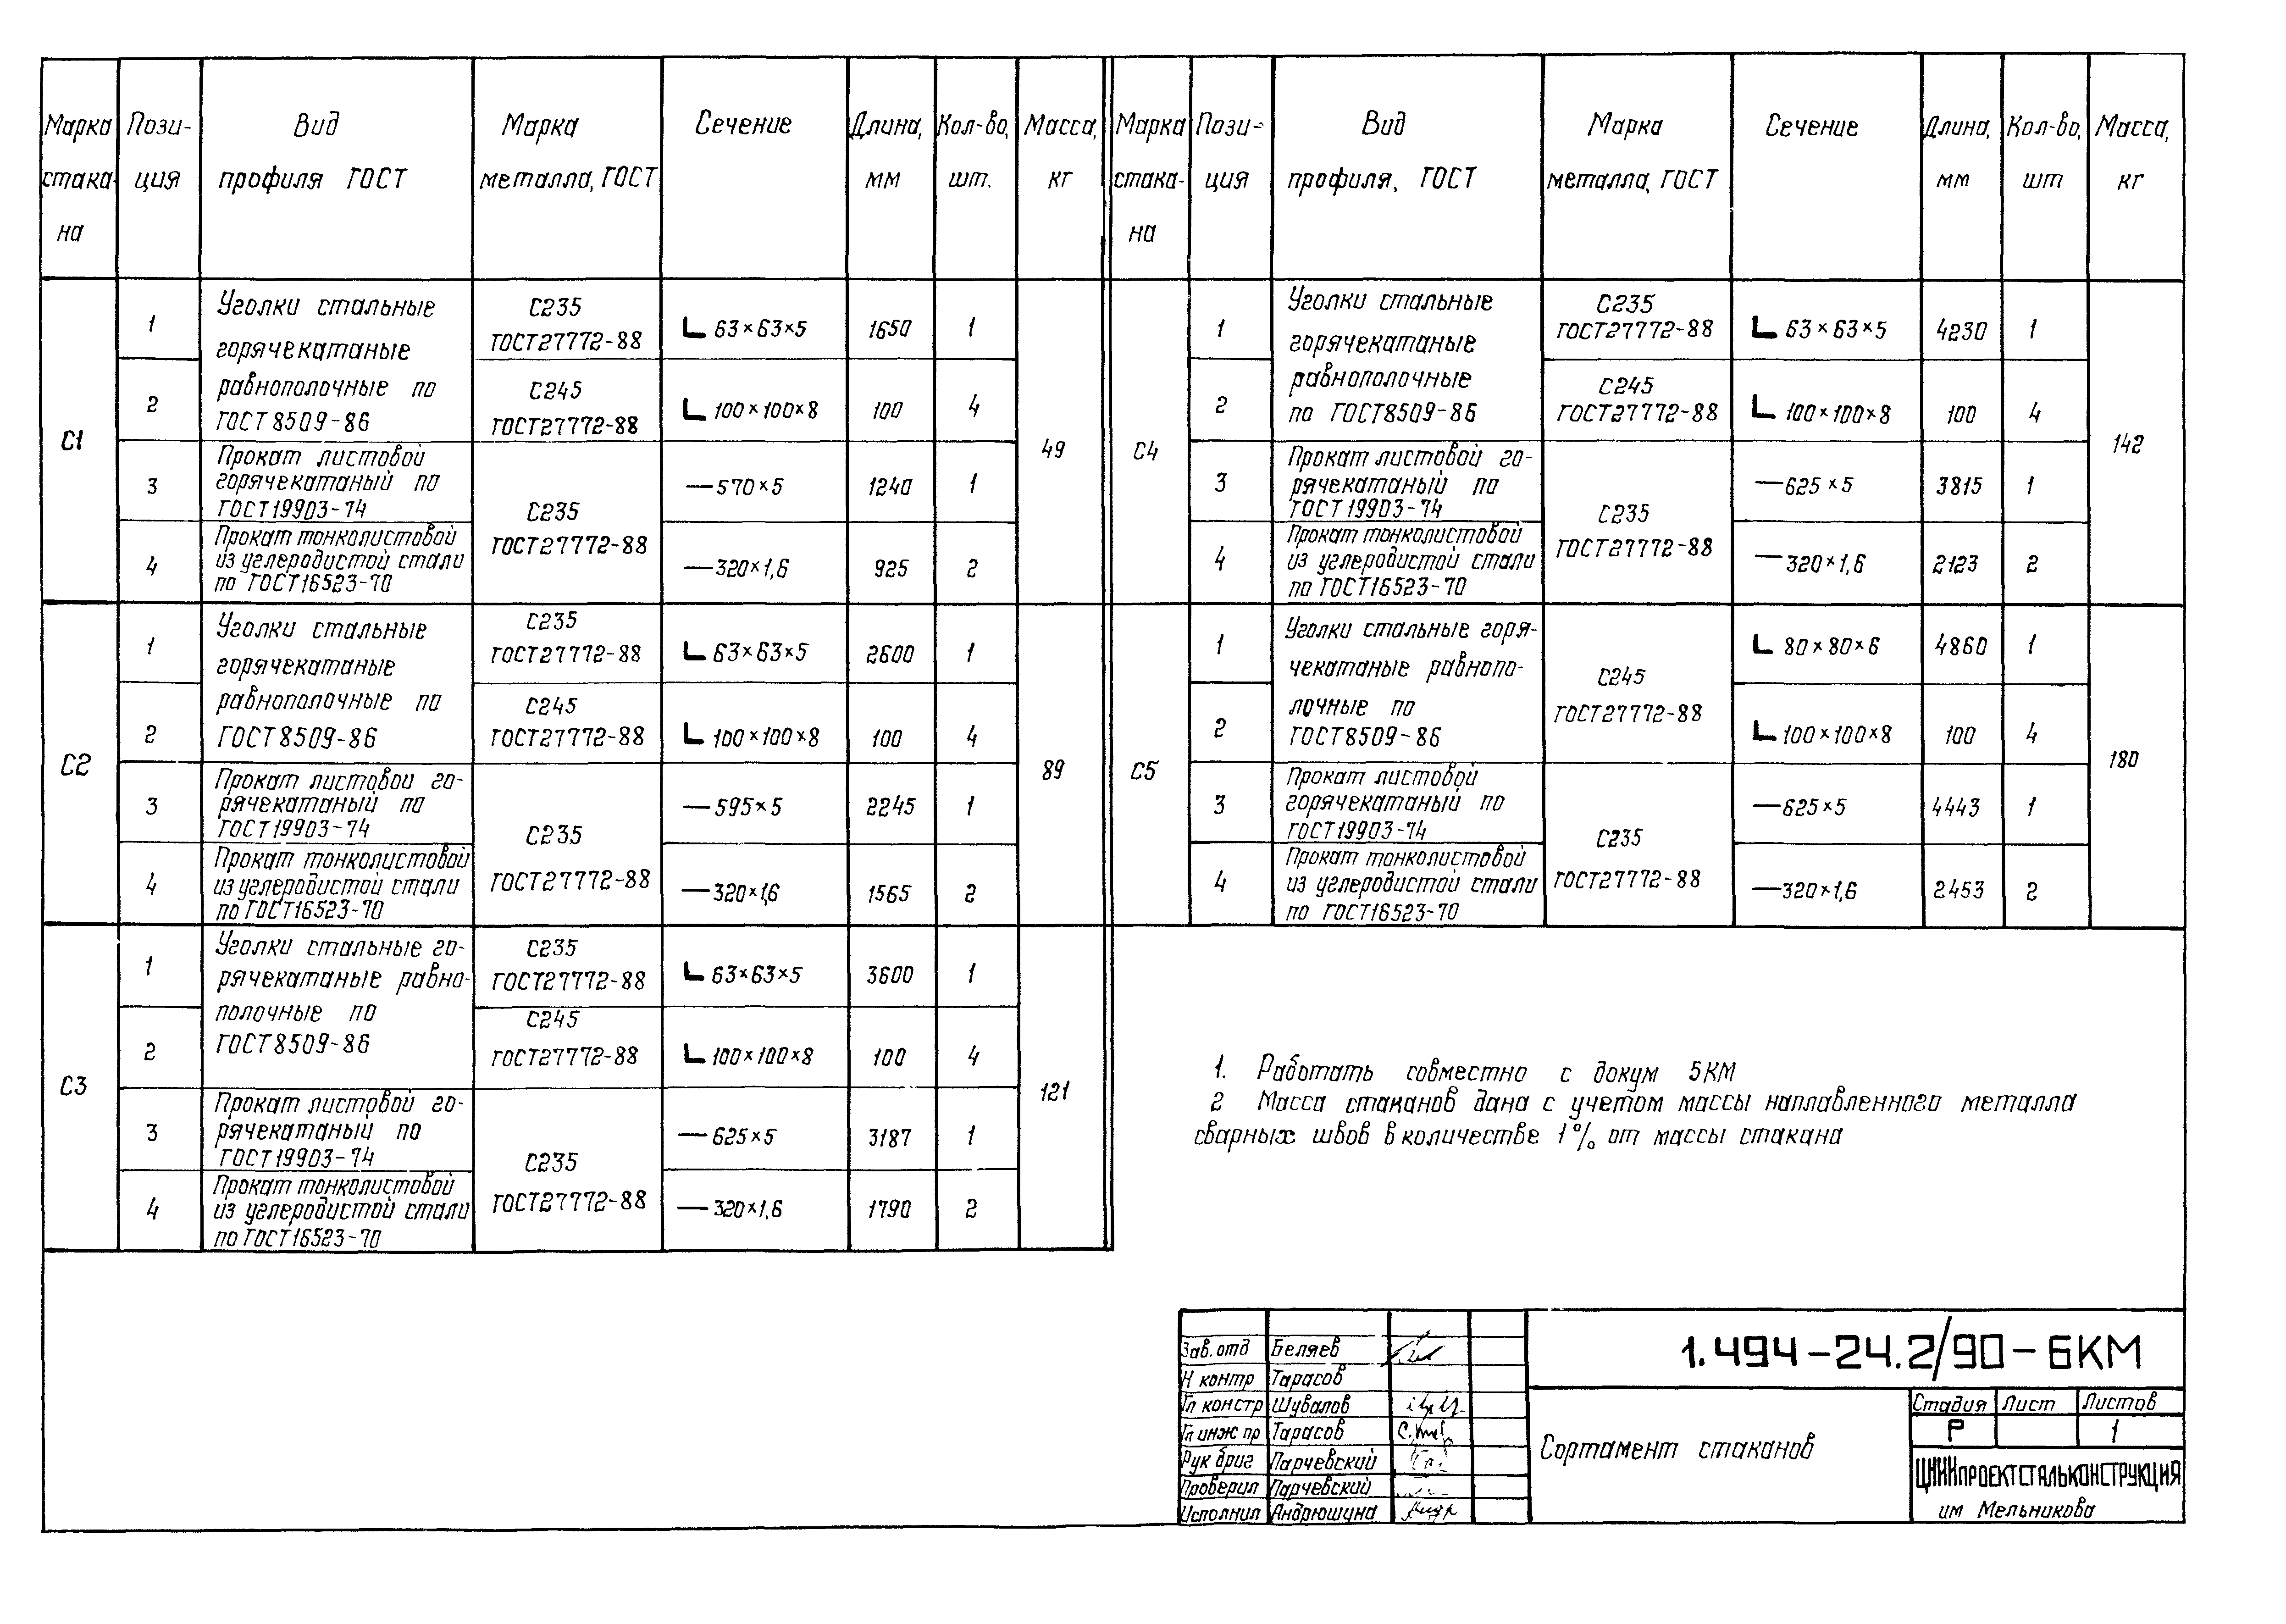 Марка стака- на
Пози- ция
Вид профиля ГОСТ
Марка металла, ГОСТ
Сечение
Длина, мм
Кол-во, шт.
Масса, кг
С1
1
Уголки стальные
горячекатаные
равнополочные по
ГОСТ 8509-86
С235
ГОСТ27772-88
L 63×63×5
1650
1
49
2
С245
ГОСТ27772-88
L 100×100×8
100
4
3
Прокат листовой
горячекатаный по
ГОСТ19903-74
С235
ГОСТ27772-88
— 570×5
1240
1
4
Прокат тонколистовой
из углеродистой стали
по ГОСТ16523-70
— 320×1,6
925
2
С2
1
Уголки стальные
горячекатаные
равнополочные по
ГОСТ8509-86
С235
ГОСТ27772-88
L 63×63×5
2600
1
89
2
С245
ГОСТ27772-88
L 100×100×8
100
4
3
Прокат листовой го-
рячекатаный по
ГОСТ19903-74
С235
ГОСТ27772-88
— 595×5
2245
1
4
Прокат тонколистовой
из углеродистой стали
по ГОСТ16523-70
— 320×1,6
1565
2
С3
1
Уголки стальные го-
рячекатаные равно-
полочные по
ГОСТ8509-86
С235
ГОСТ27772-88
L 63×63×5
3600
1
121
2
С245
ГОСТ27772-88
L 100×100×8
100
4
3
Прокат листовой го-
рячекатаный по
ГОСТ19903-74
С235
ГОСТ27772-88
— 625×5
3187
1
4
Прокат тонколистовой
из углеродистой стали
по ГОСТ16523-70
— 320×1,6
1790
2
Марка стака- на
Пози- ция
Вид профиля, ГОСТ
Марка металла, ГОСТ
Сечение
Длина, мм
Кол-во, шт
Масса, кг
С4
1
Уголки стальные
горячекатаные
равнополочные
по ГОСТ8509-86
С235
ГОСТ27772-88
L 63×63×5
4230
1
142
2
С245
ГОСТ27772-88
L 100×100×8
100
4
3
Прокат листовой го-
рячекатаный по
ГОСТ19903-74
С235
ГОСТ27772-88
— 625×5
3815
1
4
Прокат тонколистовой
из углеродистой стали
по ГОСТ16523-70
— 320×1,6
2123
2
С5
1
Уголки стальные горя-
чекатаные равнопо-
лочные по
ГОСТ8509-86
С245
ГОСТ27772-88
L 80×80×6
4860
1
180
2
L 100×100×8
100
4
3
Прокат листовой
горячекатаный по
ГОСТ19903-74
С235
ГОСТ27772-88
— 625×5
4443
1
4
Прокат тонколистовой
из углеродистой стали
по ГОСТ16523-70
— 320×1,6
2453
2
1. Работать совместно с докум 5КМ
2 Масса стаканов дана с учетом массы наплавленного металла
сварных швов в количестве 1% от массы стакана
Зав. отд Беляев
Н контр Тарасов
Гл констр Шувалов
Гл инж пр Тарасов
Рук бриг Парчевский
Проверил Парчевский
Исполнил Андрюшина
1.494-24.2/90-6КМ
Сортамент стаканов
Стадия Лист Листов
Р 1
ЦНИИПРОЕКТСТАЛЬКОНСТРУКЦИЯ
им Мельникова